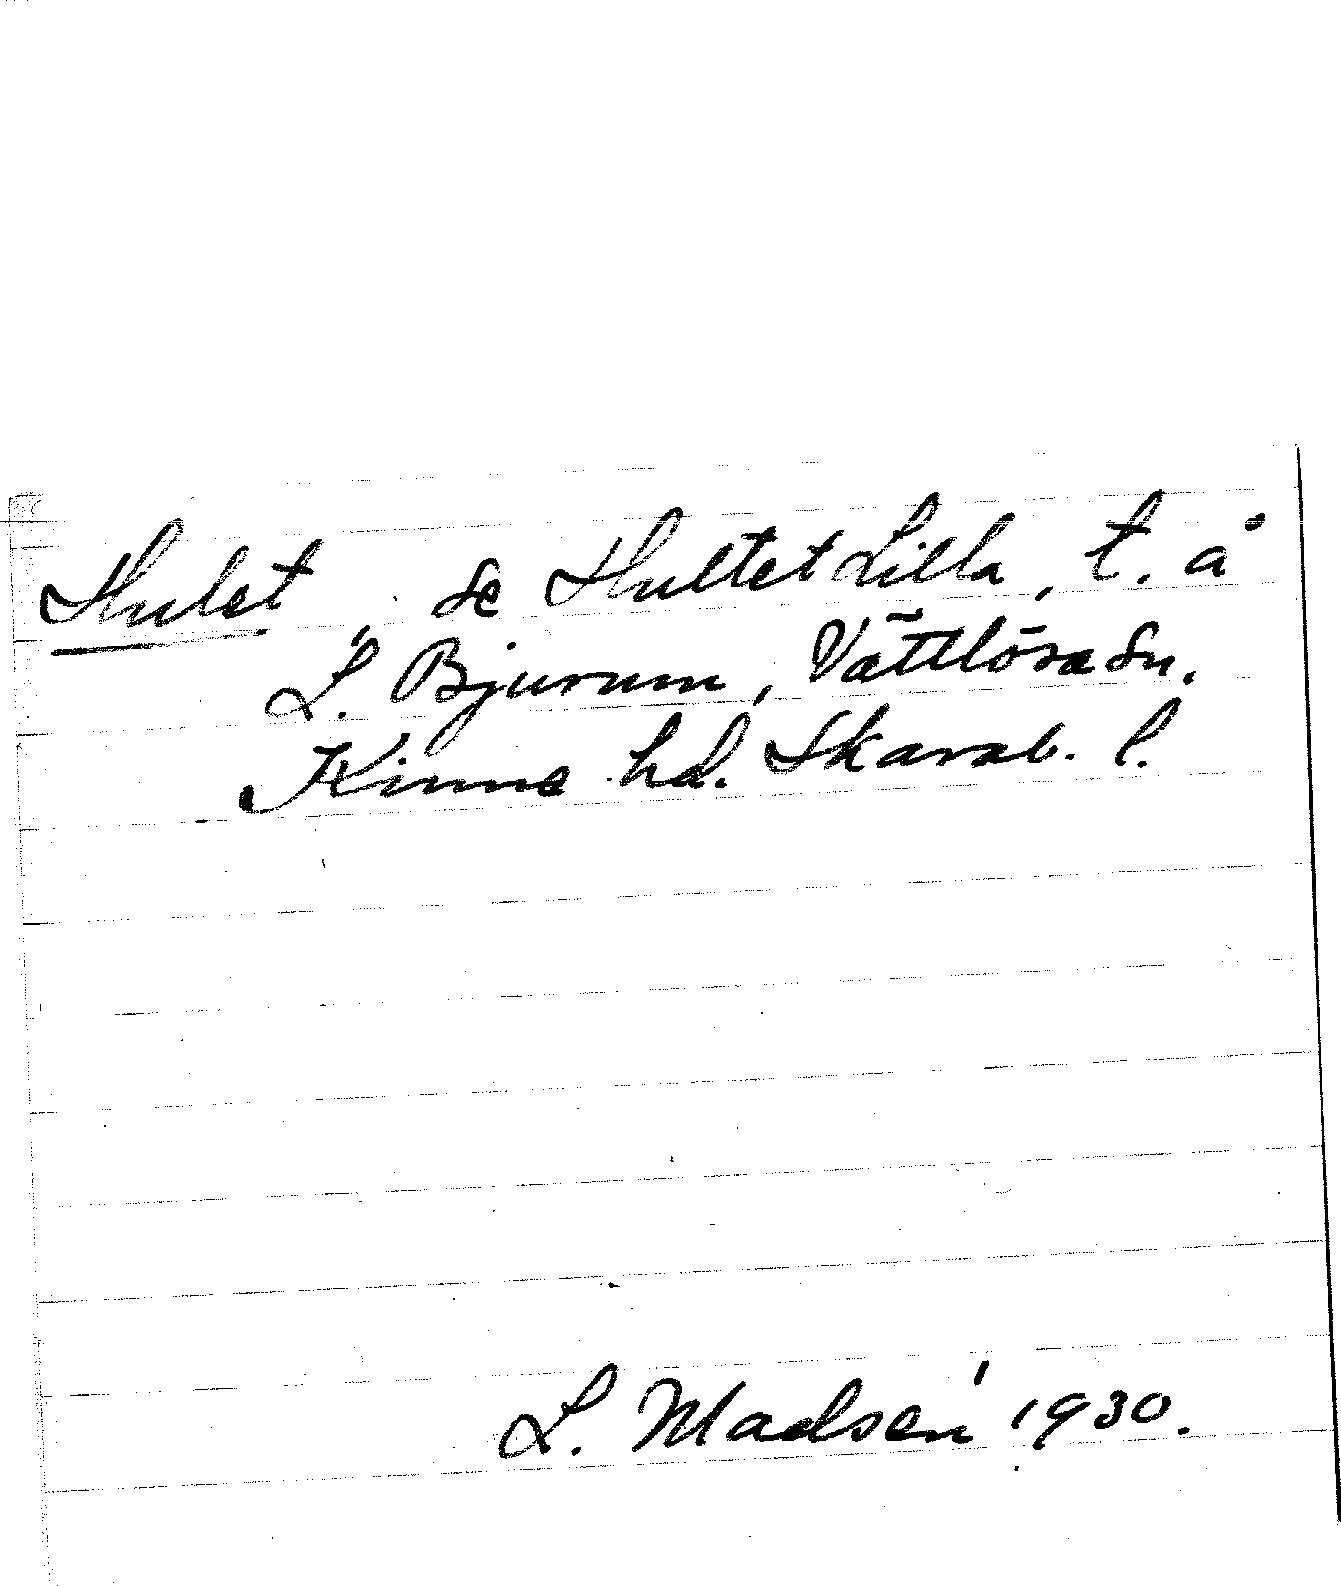 Hulet, se Hultet Lilla, t. å
L. Bjurum, Vättlösa sn.
Kinne hd. Skarab. l.
L. Madsén 1930.